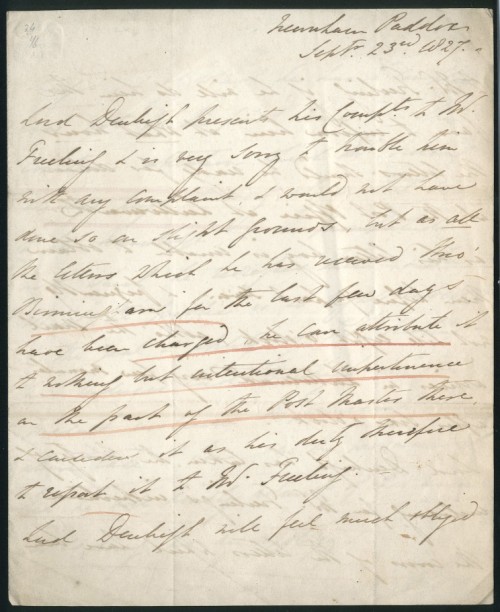 Newnham Paddox
Septr. 23rd 1827.
Lord Denbigh presents his Compts. to Mr.
Freeling & is very sorry to trouble him
with any complaint, & would not have
done so on slight grounds, but as all
the letters which he has received thro'
Birming'am for the last few days
have been charged, he can attribute it
to nothing but intentional impertinence
on the part of the Post Master there,
& considers it as his duty therefore
to report it to Mr. Freeling.
Lord Denbigh will feel much obliged